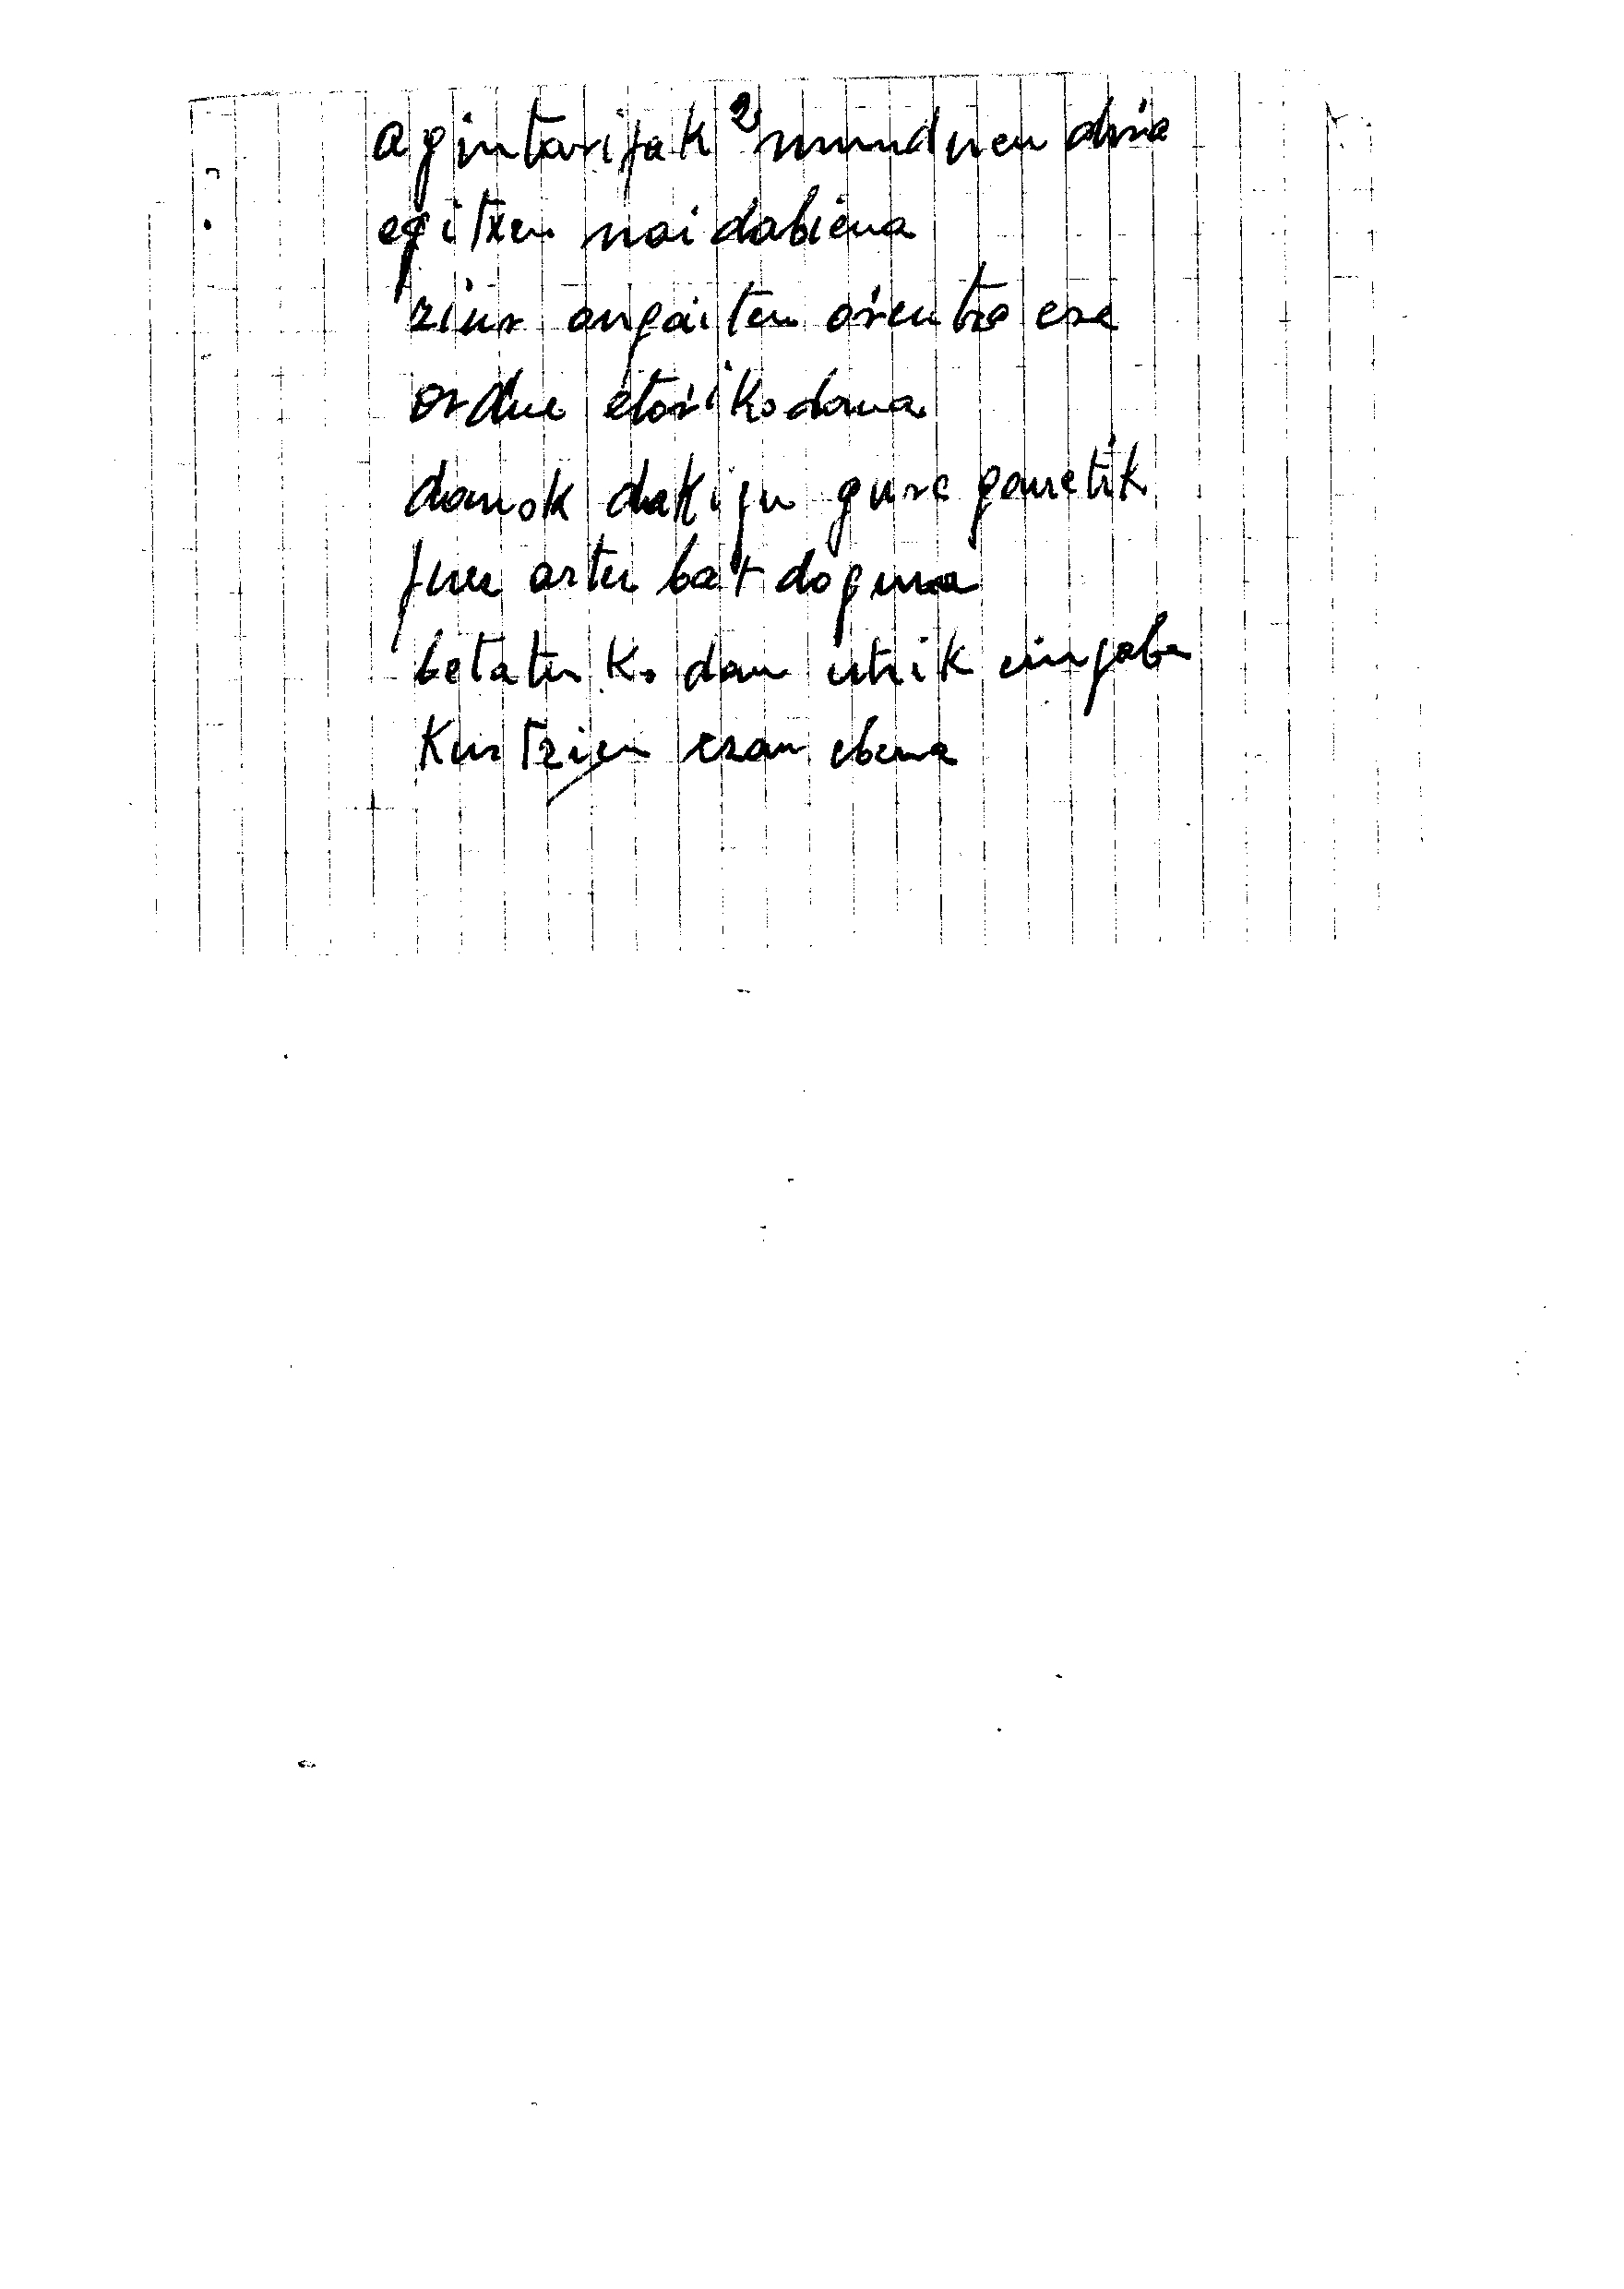 agintarijak 2 munduen dira
egitxen nai dabiena
ziur angaiten órentzo ere
ordue etoŕiko dana
danok dakigu gure ganetik
jueu artu bat doguna
betatuko dau utsik eingabe
Kurtzien esan ebena